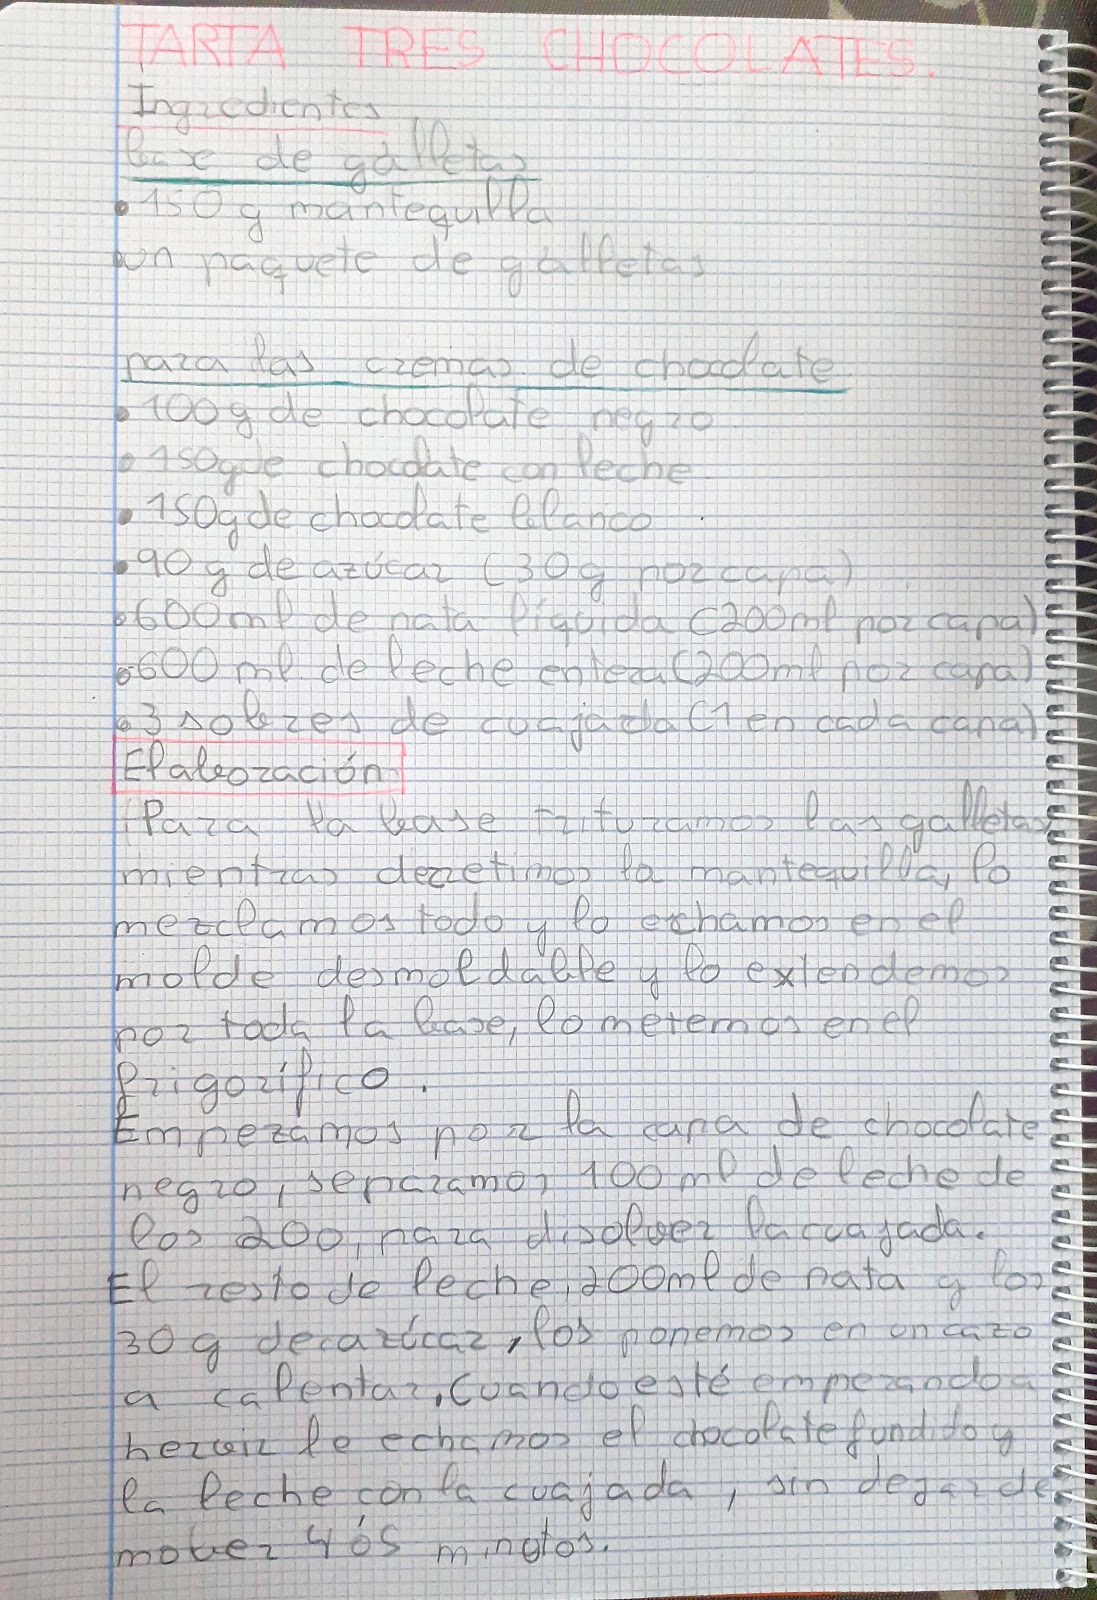 TARTA TRES CHOCOLATES.
Ingredientes
base de galletas
• 150 g mantequilla
un paquete de galletas
para las cremas de chocolate
• 100g de chocolate negro
• 150g de chocolate con leche
• 150g de chocolate blanco
• 90 g de azúcar (30 g por capa)
• 600 ml de nata líquida (200ml por capa)
• 600 ml de leche entera (200ml por capa)
• 3 sobres de cuajada (1 en cada capa)
Elaboración
Para la base trituramos las galletas
mientras derretimos la mantequilla, lo
mezclamos todo y lo echamos en el
molde desmoldable y lo extendemos
por toda la base, lo metemos en el
frigorífico.
Empezamos por la capa de chocolate
negro, separamos 100 ml de leche de
los 200, para disolver la cuajada.
El resto de leche, 200ml de nata y los
30 g de azúcar, los ponemos en un cazo
a calentar. Cuando esté empezando a
hervir le echamos el chocolate fundido y
la leche con la cuajada, sin dejar de
mover 4 ó 5 minutos.